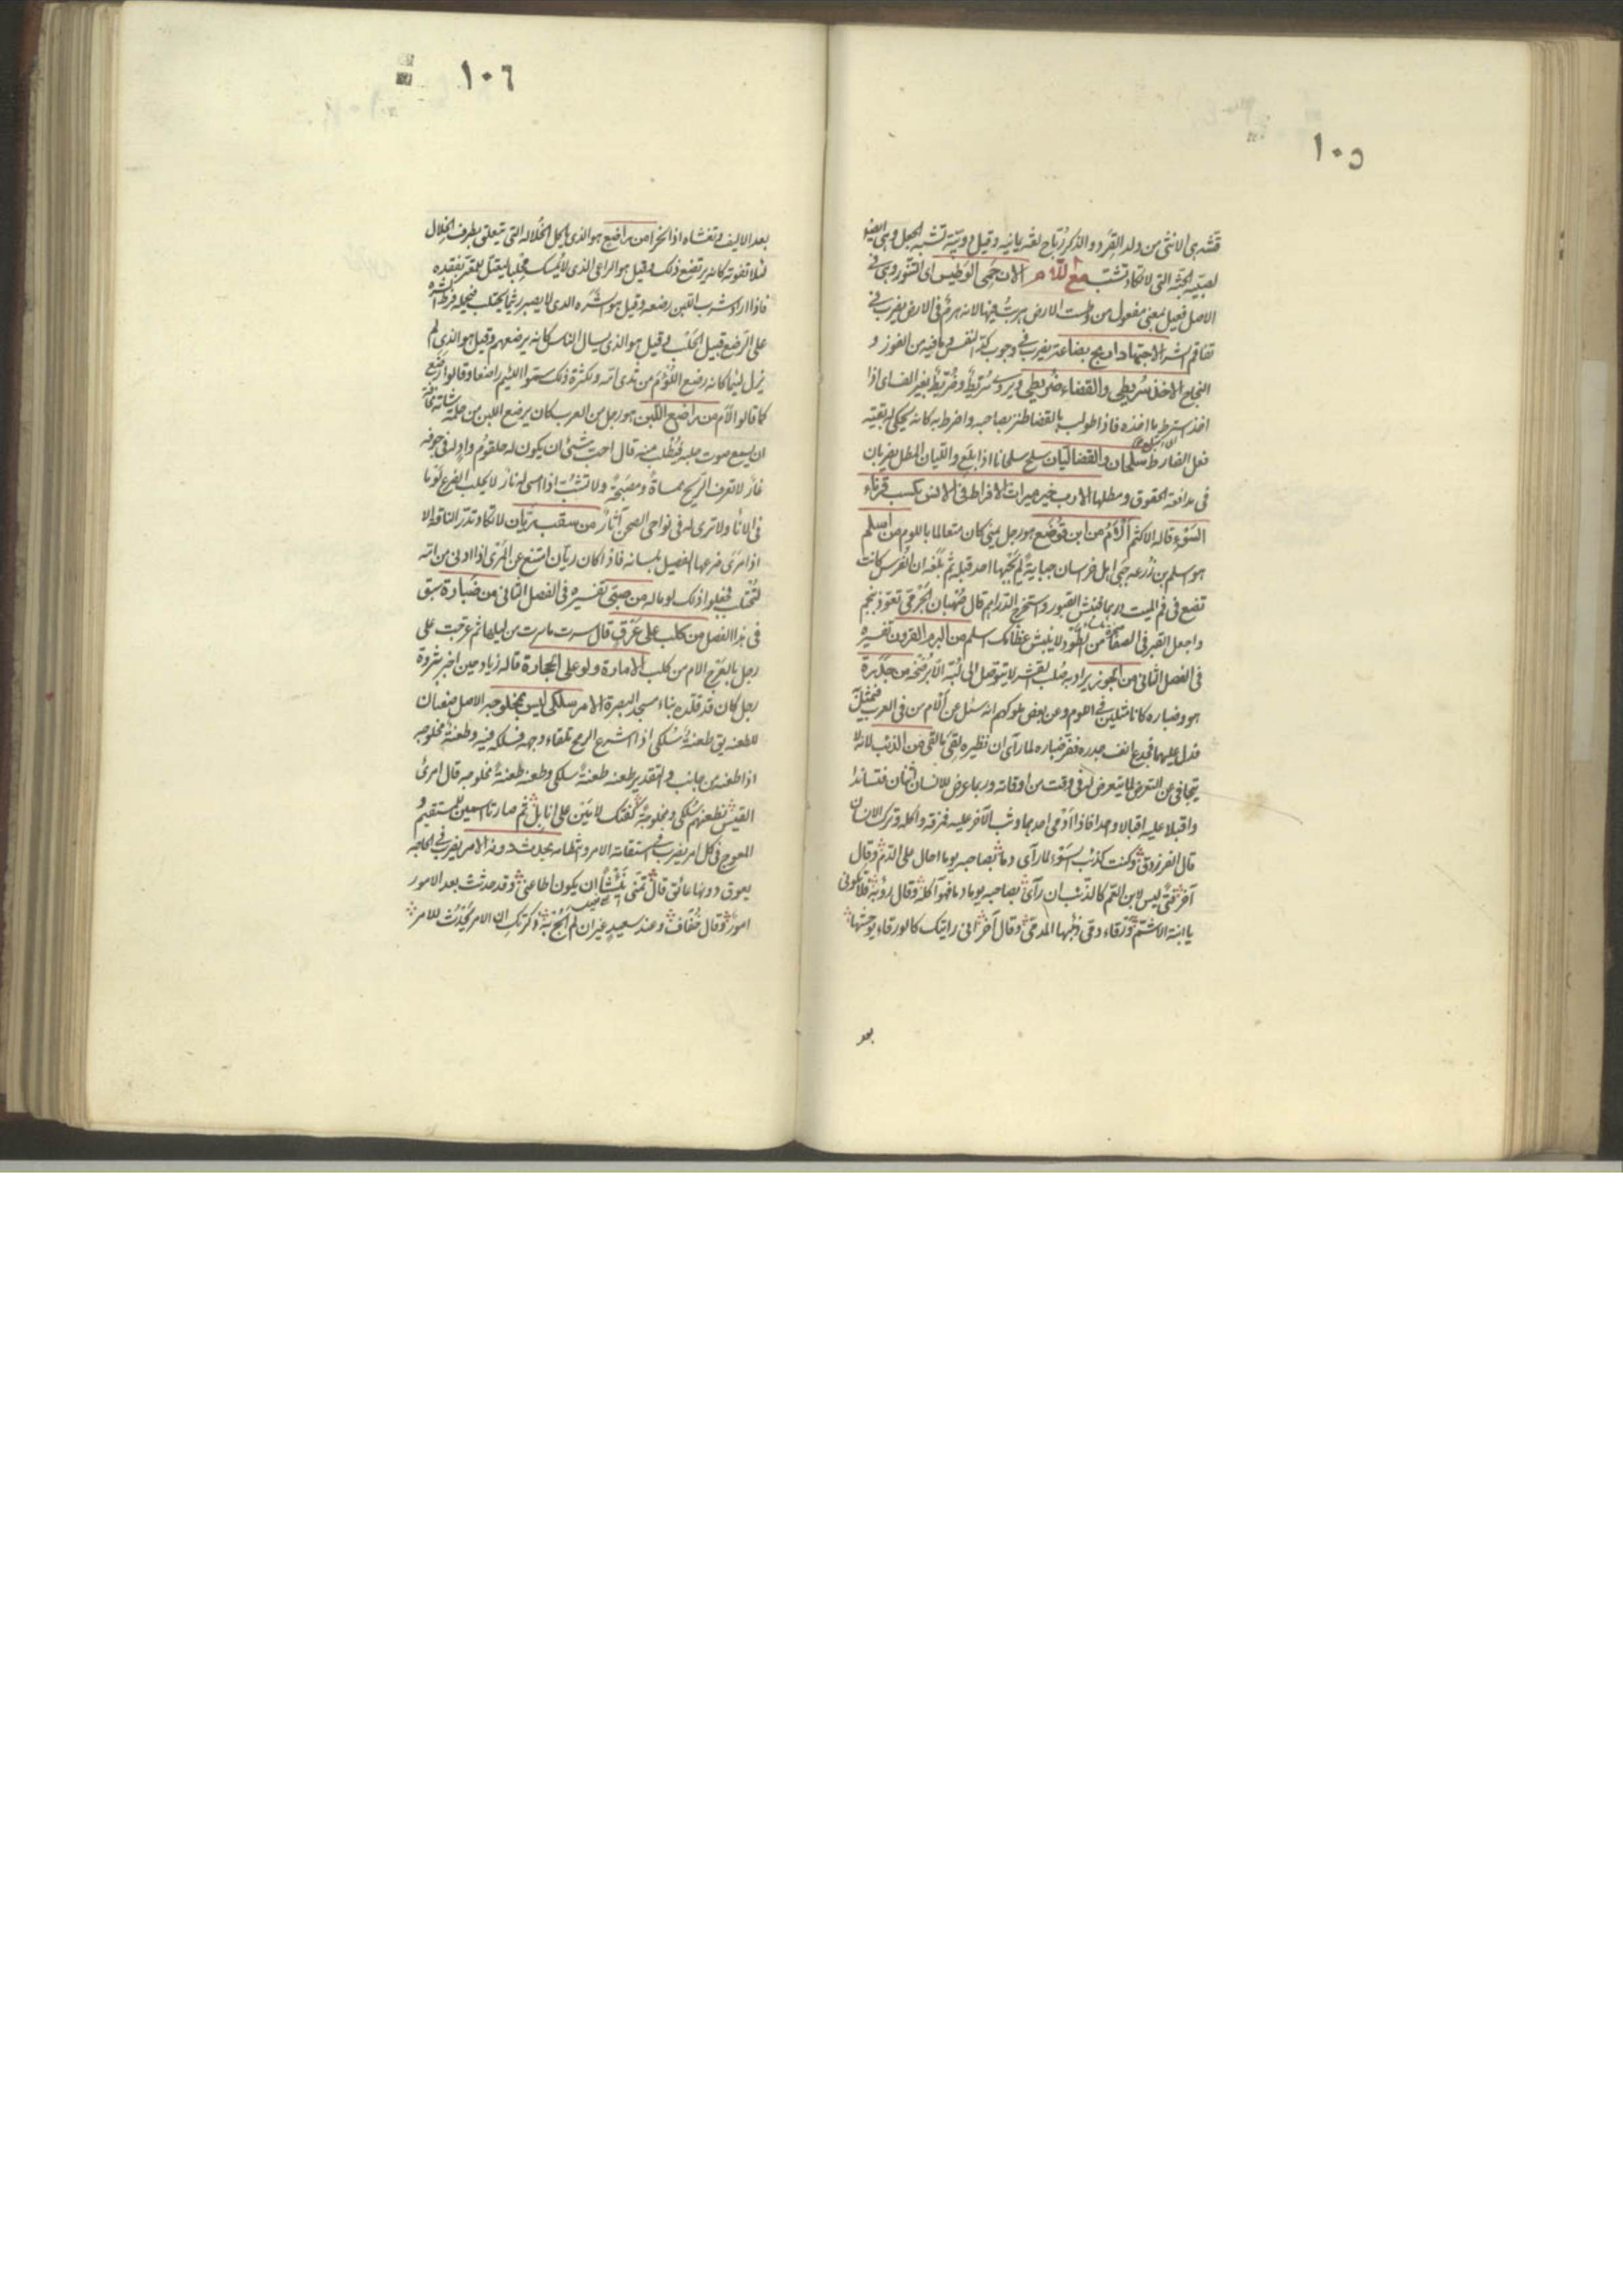 ١٠٥
قشة هي الانثى من ولد القرد والذكر رُبّاح لغة يمانية وقيل دويبة تشبه الجعل وهي ايضا
لصبيه الجثة التي لا تكاد تشب مع اللام الآن حَمِيَ الوَطيس اي التنور وهي في
الاصل فعيل بمعنى مفعول من وطست الارض لانه هزم في الارض يضرب في
تفاقم الشر الاجتهاد اربح بضاعة يضرب في وجوب كد النفس لما فيه من الفوز و
النجاح الاخذ سُرّيطى والقضاء ضُرّيطى ويروى سُرّيط وضُرّيط بغير الف اي اذا
اخذ استرط ما اخذه فاذا طولب بالقضا طنز بصاحبه واضرط به كانه يحكي له بقيته
فعل الضارط الاكل سلجان والقضا ليّان سلج سلجانا اذا بلع والليان المطل يضربان
في مدافعة الحقوق ومطلها الادب خير ميراث الافراط في الانس يكسب قرناء
السوء قاله الاكثم أَلْأَمُ من ابن قَوْضَع هو رجل يمني كان متعالما باللوم من أسلم
هو اسلم بن زُرعه جبى اهل خراسان جباية لم يجبها احد قبله ثم بلغه ان الفرس كانت
تضع في فم الميت درهما فنبش القبور واستخرج الدراهم قال صهبان الجرمي تعوذ بنجم
واجعل القبر في الصفا من الطود لا ينبش عظامك اسلم من البرم القرون تفسيره
في الفصل الثاني من الجوز يراد به صُلب بقشره لا يتوصل الى لبّه الا برضخه من جَدَرة
هو وضباره كانا مثلين في اللوم وعن بعض ملوكهم انه سئل عن أَلأم من في العرب فتمثل
فدل عليهما فجدع انف جدره ففر ضباره لما رأى ان نظيره لقي ما لقي من الذئب لانه لا
يتجافى عن التعرض لما يتعرض له في وقت من اوقاته وربما عرض للانسان اثنان فتساندا
واقبلا عليه اقبالا واحدا فاذا ادمى احدهما وثب الآخر عليه فمزقه واكله وترك الانسان
قال الفرزدق وكنت كذئب السَّوْء لما رأى دما بصاحبه يوما احال على الدم وقال
آخر فتى ليس لابن العم كالذئب ان رأى بصاحبه يوما دما فهو آكله وقال رؤبة فلا تكوني
يا ابنة الاشمّ ورقاء دمى ذئبها المدمى وقال آخر اني رايتك كالورقاء يوحشها
بعد
١٠٦
بعد الاليف وتغشاه اذا نحرا من راضع هو الذي ياكل الخُلالة التي تتعلق بطرف الخلال
لئلا تفوته كانه يرتضع ذلك وقيل هو الراعي الذي لا يمسك محلبا ليعتل للمعتر بفقده
فاذا اراد شرب اللبن رضعه وقيل هو الشَّرِه الذي لا يصبر ريثما يحتلب فيحمله فرط الشره
على الرضع قبيل الحلب وقيل هو الذي يسال الناس كانه يرضعهم وقيل هو الذي لم
يزل لئيما كانه رضع اللُّؤْمَ من ثدي امه ولكثرة ذلك سموا اللئيم راضعا وقالوا رَضُعَ
كما قالوا لَأُم من راضع اللبن هو رجل من العرب كان يرضع اللبن من حلمة شاته مخافة
ان يسمع صوت حلبه فيُطلب منه قال احب شيئ ان يكون له حلقوم واد له في جوفه
غار لا تعرف الريح ممساه ومصبحه ولا تشب اذا امسى له نار لا يحلب الضرع لؤما
في الانا ولا ترى له في نواحي الصحن آثار من سقب ريّان لا تكاد تدر الناقة الا
اذا مَرَى ضرعها الفصيل بلسانه فاذا كان ريّان امتنع عن المَرْي اذا ادني من امه
لتُحتلب فجعلوا ذلك لوما له من صبي تفسيره في الفصل الثاني من ضَبارة سبق
في هذا الفصل من كلب على عَرْقٍ قال سرت ما سرت من ليلها ثم عرجت على
رجل بالعَرْج الام من كلب الامارة ولو على الحجارة قاله زياد حين اخبر بثروة
رجل كان قد قلّده بناء مسجد البصرة الامر سلكى ليس بمخلوجة الاصل صفتان
للطعنة يق طعنة سُلكى اذا اشرع الرمح تلقاء وجهه فسلكه فيه وطعنة مخلوجه
اذا طعنه من جانب والتقدير طعنه طعنةً سلكى وطعنه طعنةً مخلوجه قال امرئ
القيس نطعنهم سُلكى ومخلوجةً لفتك لأمَيْن على نابل ثم صارتا اسمين للمستقيم و
المعوج في كل امر يضرب في استقامة الامر وانتظامه يحدث دونه الامر يضرب في الحاجة
يعوق دونها عائق قال تمنى نَئيشًا ان يكون اطاعني وقد حدثت بعد الامور
امور وقال خُفاف وعند سعيد غير ان لم ابُح به ذكرتك ان الامر يَحدُث للامر